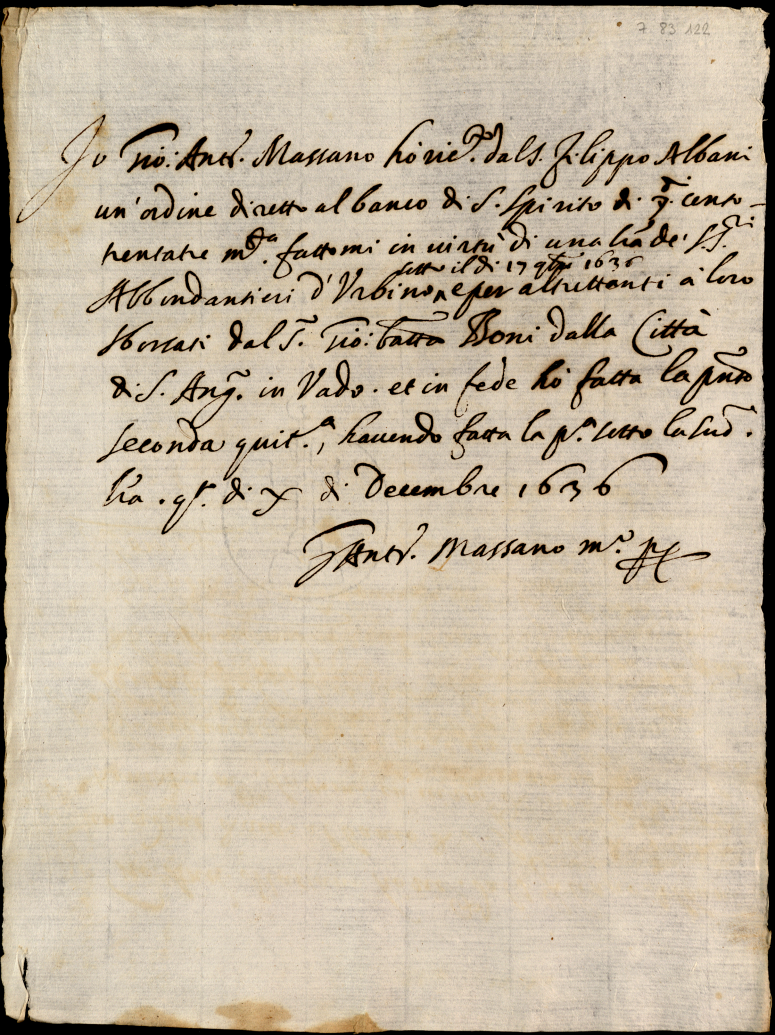 7 83 122
Io Gio: Ant.o Massano hò ric.to dal S. Filippo Albani
un' ordine diretto al banco di S. Spirito di cento
trentatre m.ta fattomi in virtù di una l̃ra de' SS.ri
sotto il di 17 9bre 1636
Abbondantieri d'Urbino, e per altrettanti à loro
sborsati dal S.r Gio: Batta Boni dalla Città
di S. Ang.o in Vado. et in fede hò fatta la p̃nte
seconda quit.a, havendo fatta la p.a sotto la sud.
l̃ra. q.to di X di Decembre 1636
Ant.o Massano m.o pp